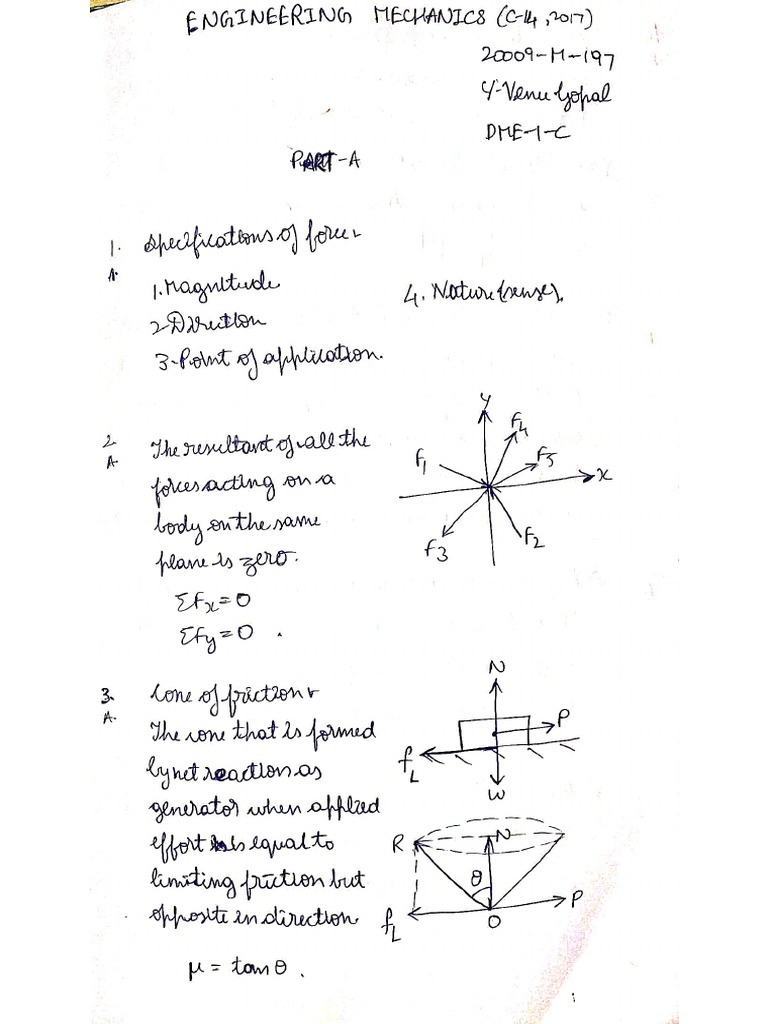 ENGINEERING MECHANICS (C-14, 2017)
20009-M-197
Y. Venu Gopal
DME-1-C
PART-A
1. Specifications of force:
A. 1. Magnitude
4. Nature (sense).
2. Direction
3. Point of application.
2. The resultant of all the
A. forces acting on a
body on the same
plane is zero.
ΣFx = 0
ΣFy = 0 .
Y
F4
F1
F5
X
F3
F2
3. Cone of friction:
A. The cone that is formed
by net reaction as
generator when applied
effort is equal to
limiting friction but
opposite in direction
μ = tan θ .
N
P
fL
W
R
N
θ
P
fL
O